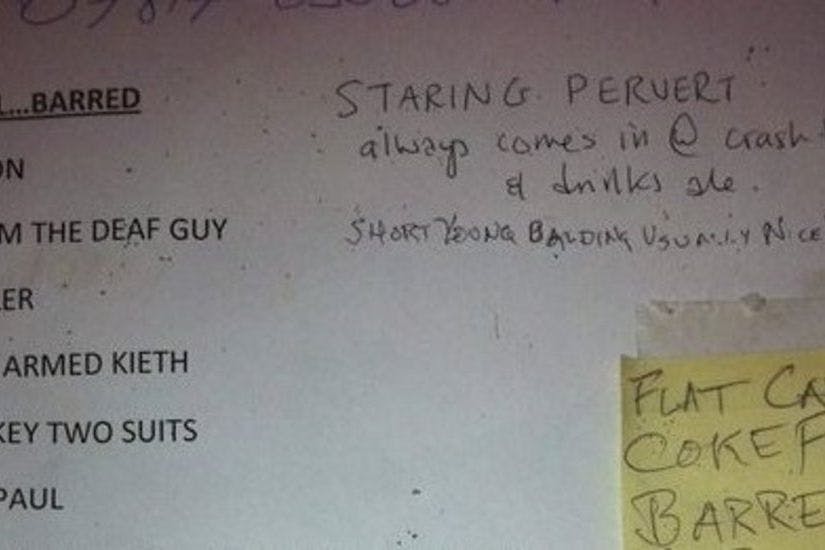 L...BARRED
ON
M THE DEAF GUY
LER
ARMED KIETH
KEY TWO SUITS
PAUL
STARING PERVERT
always comes in @ crash
& drinks ale.
SHORT YOUNG BALDING USUALLY NICE
FLAT CA
COKE F
BARRE